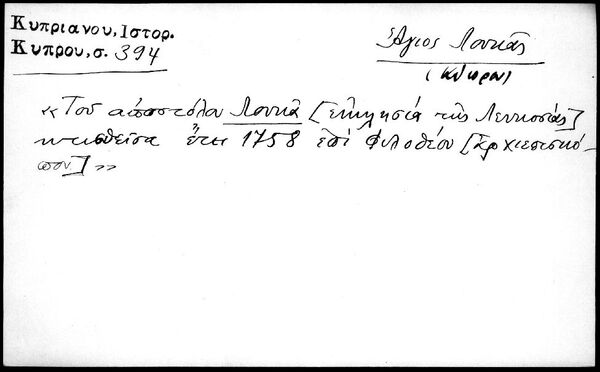 Κυπριανου, Ιστορ.
Κυπρου, σ. 394
Ἅγιος Λουκᾶς
(Κύπρου)
«Τοῦ ἀποστόλου Λουκᾶ [ἐκκλησία τῆς Λευκοσίας]
κτισθεῖσα ἔτει 1758 ἐπὶ Φιλοθέου [ἀρχιεπισκό-
που]»